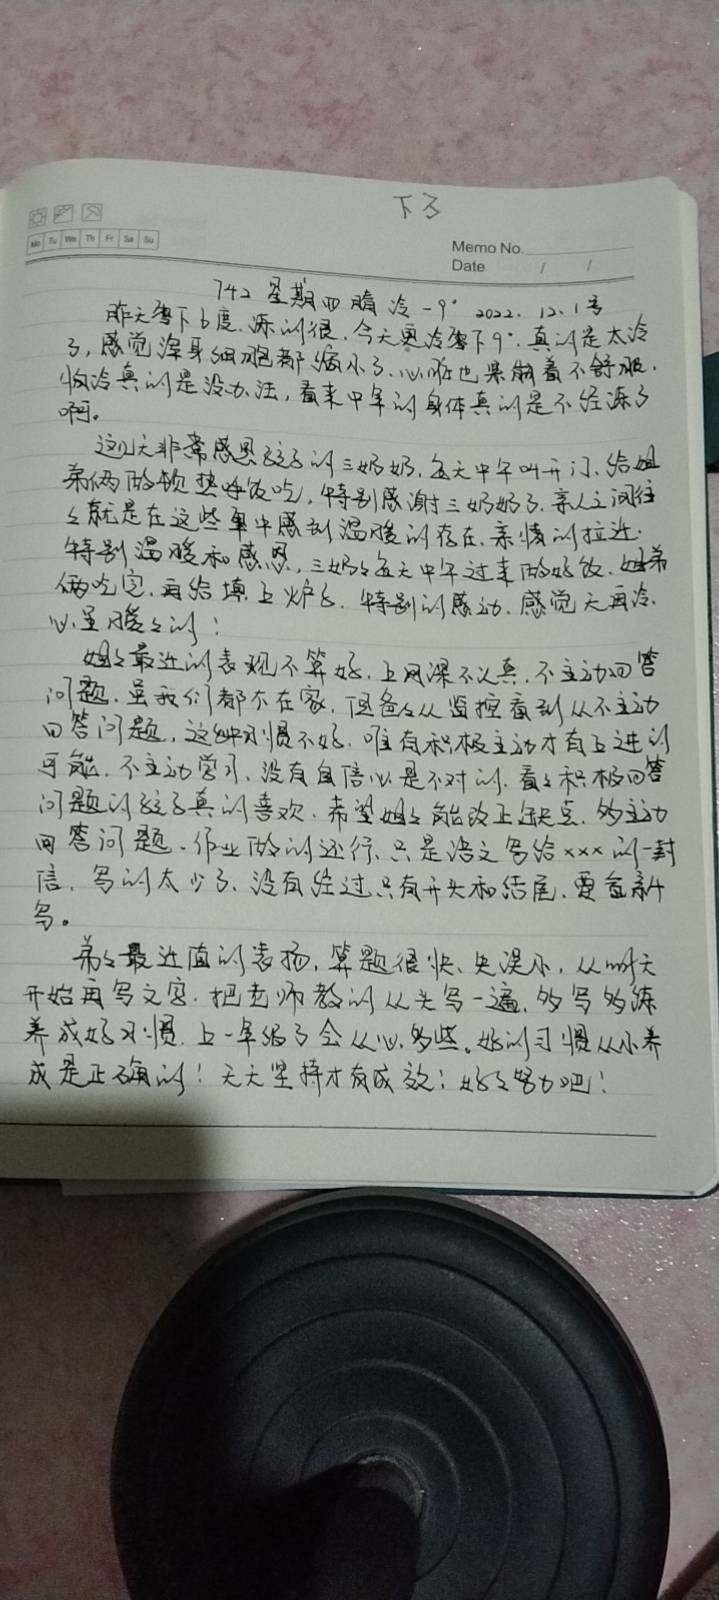 下了
Mo Tu We Th Fr Sa Su
Memo No.
Date / /
742 星期四 晴 冷 -9° 2022.12.1号
昨天零下6度.冻的很.今天更冷零下9°.真的是太冷
了,感觉浑身细胞都缩小了.心脏也紧绷着不舒服.
怕冷真的是没办法,看来中年的身体真的是不经冻了
啊。
这几天非常感恩孩子的三奶奶.每天中午叫开门.给姐
弟俩做顿热呼饭吃,特别感谢三奶奶了.亲人之间往
々就是在这些事中感到温暖的存在.亲情的拉近.
特别温暖和感恩,三奶々每天中午过来做好饭.姐弟
俩吃完.再给填上炉子.特别的感动.感觉天再冷.
心里暖々的!
姐々最近的表现不算好.上网课不认真.不主动回答
问题.虽我们都不在家.但爸々从监控看到从不主动
回答问题,这种习惯不好.唯有积极主动才有上进的
可能.不主动学习.没有自信心是不对的.看々积极回答
问题的孩子真的喜欢.希望姐々能改正缺点.多主动
回答问题.作业做的还行.只是语文写给×××的一封
信.写的太少了.没有经过只有开头和结尾.要重新
写。
弟々最近值的表扬.算题很快、失误小,从明天
开始再写文字.把老师教的从头写一遍.多写多练
养成好习惯.上一年级了会从心.多些。好的习惯从小养
成是正确的!天天坚持才有成效!好々努力吧!